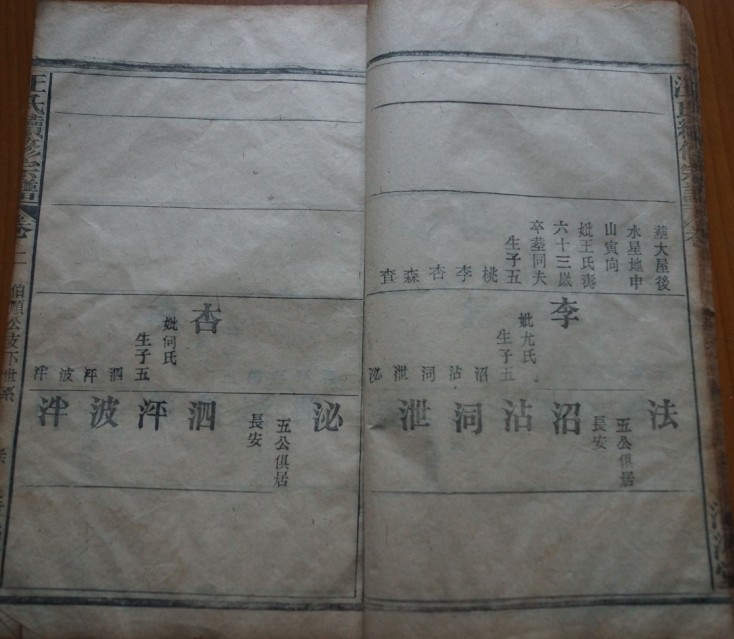 葬大屋後
水星地申
山寅向
妣王氏壽
六十三歲
卒葬同夫
生子五
桃
李
杏
森
查
李
妣尤氏
生子五
沼
沾
泂
泄
泌
法
五公俱居
長安
沼
沾
泂
泄
杏
妣何氏
生子五
泗
泙
波
泮
泌
五公俱居
長安
泗
泙
波
泮
汪氏續修宗譜
卷二
伯順公支下世系